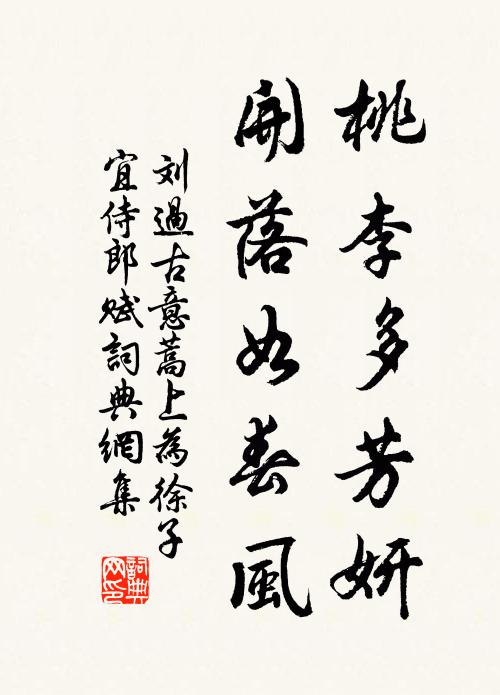 桃李多芳妍
開落如春風
刘過古意蒿上為徐子
宜侍郎賦詞典網集
詞典网印